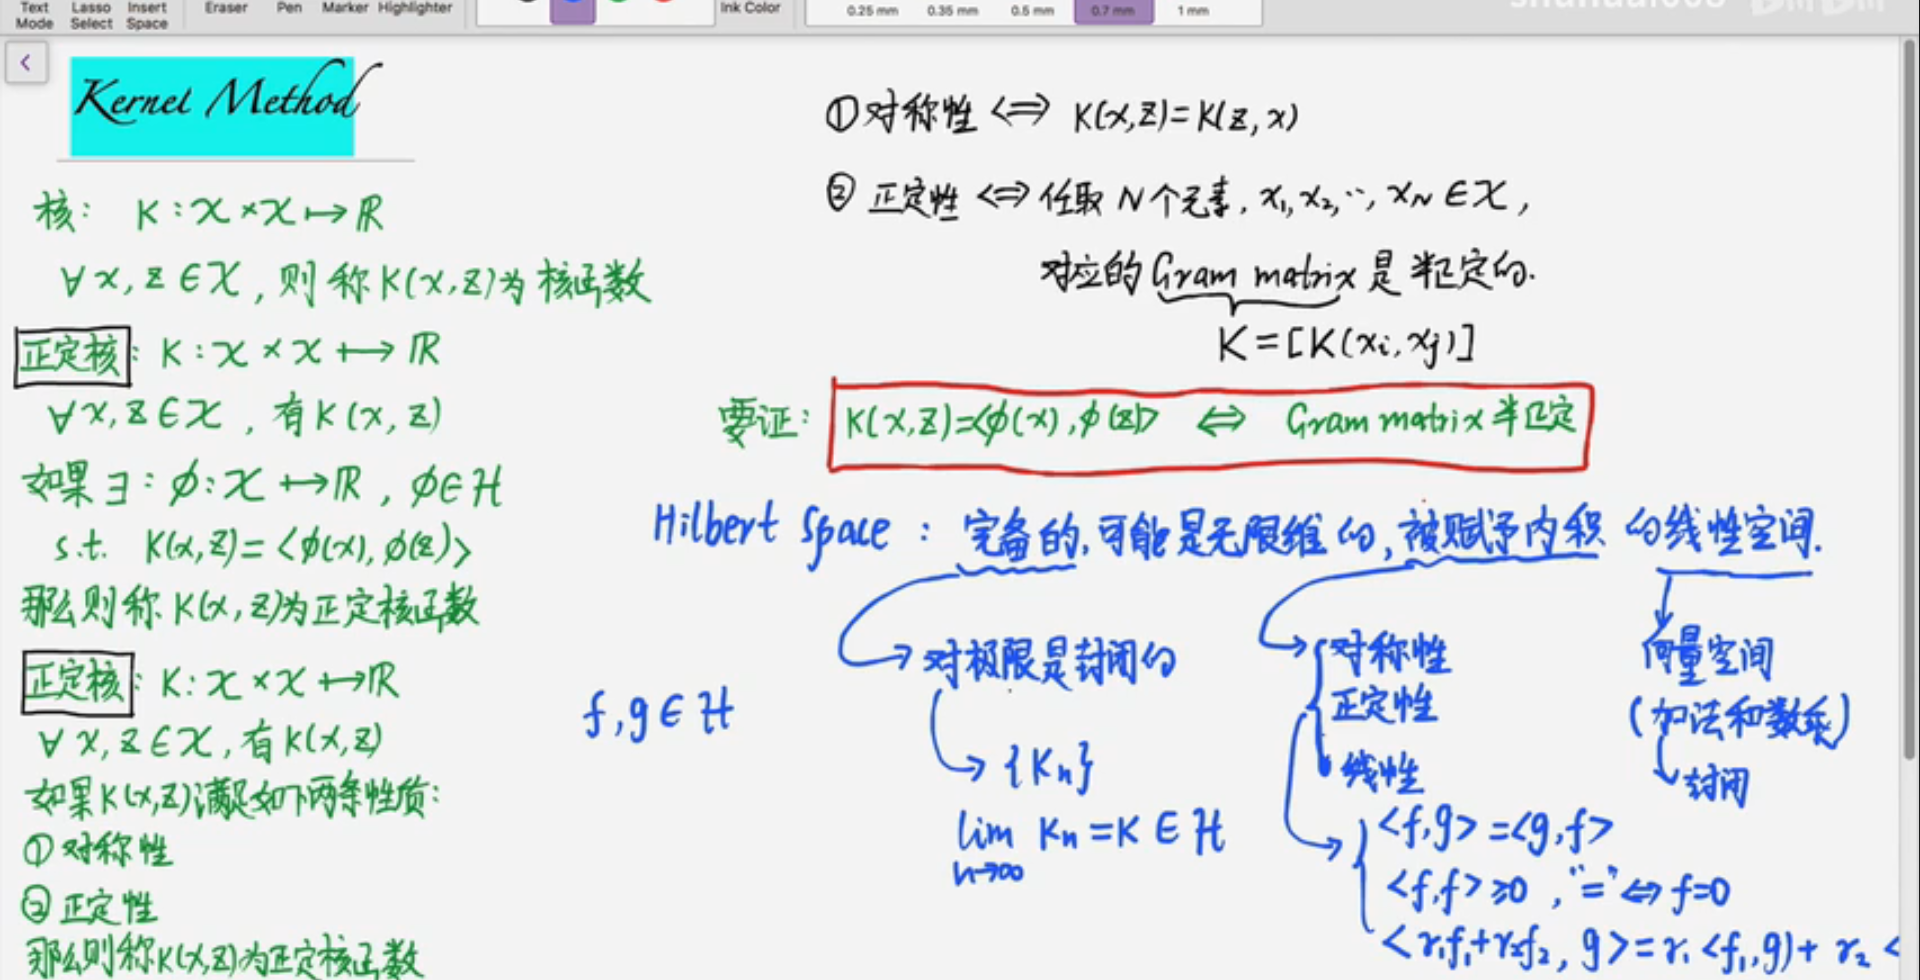 Text Mode
Lasso Select
Insert Space
Eraser
Pen
Marker
Highlighter
Ink Color
0.25 mm
0.35 mm
0.5 mm
0.7 mm
1 mm
Kernel Method
核: K:X×X↦ℝ
∀x,z∈X, 则称K(x,z)为核函数
正定核: K:X×X↦ℝ
∀x,z∈X, 有K(x,z)
如果∃: ϕ:X↦ℝ, ϕ∈H
s.t. K(x,z)=<ϕ(x),ϕ(z)>
那么则称K(x,z)为正定核函数
正定核: K:X×X↦ℝ
∀x,z∈X, 有K(x,z)
如果K(x,z)满足如下两条性质:
①对称性
②正定性
那么则称K(x,z)为正定核函数
①对称性 ⇔ K(x,z)=K(z,x)
②正定性 ⇔ 任取N个元素, x₁,x₂,…,x_N∈X,
对应的Gram matrix是半正定的.
K=[K(xᵢ,xⱼ)]
要证: K(x,z)=<ϕ(x),ϕ(z)> ⇔ Gram matrix半正定
Hilbert Space: 完备的,可能是无限维的,被赋予内积的线性空间.
对极限是封闭的
对称性
正定性
线性
向量空间
(加法和数乘)
封闭
f,g∈H
{Kₙ}
lim Kₙ=K∈H
n→∞
<f,g>=<g,f>
<f,f>≥0, "="⇔f=0
<r₁f₁+r₂f₂, g>=r₁<f₁,g)+r₂<